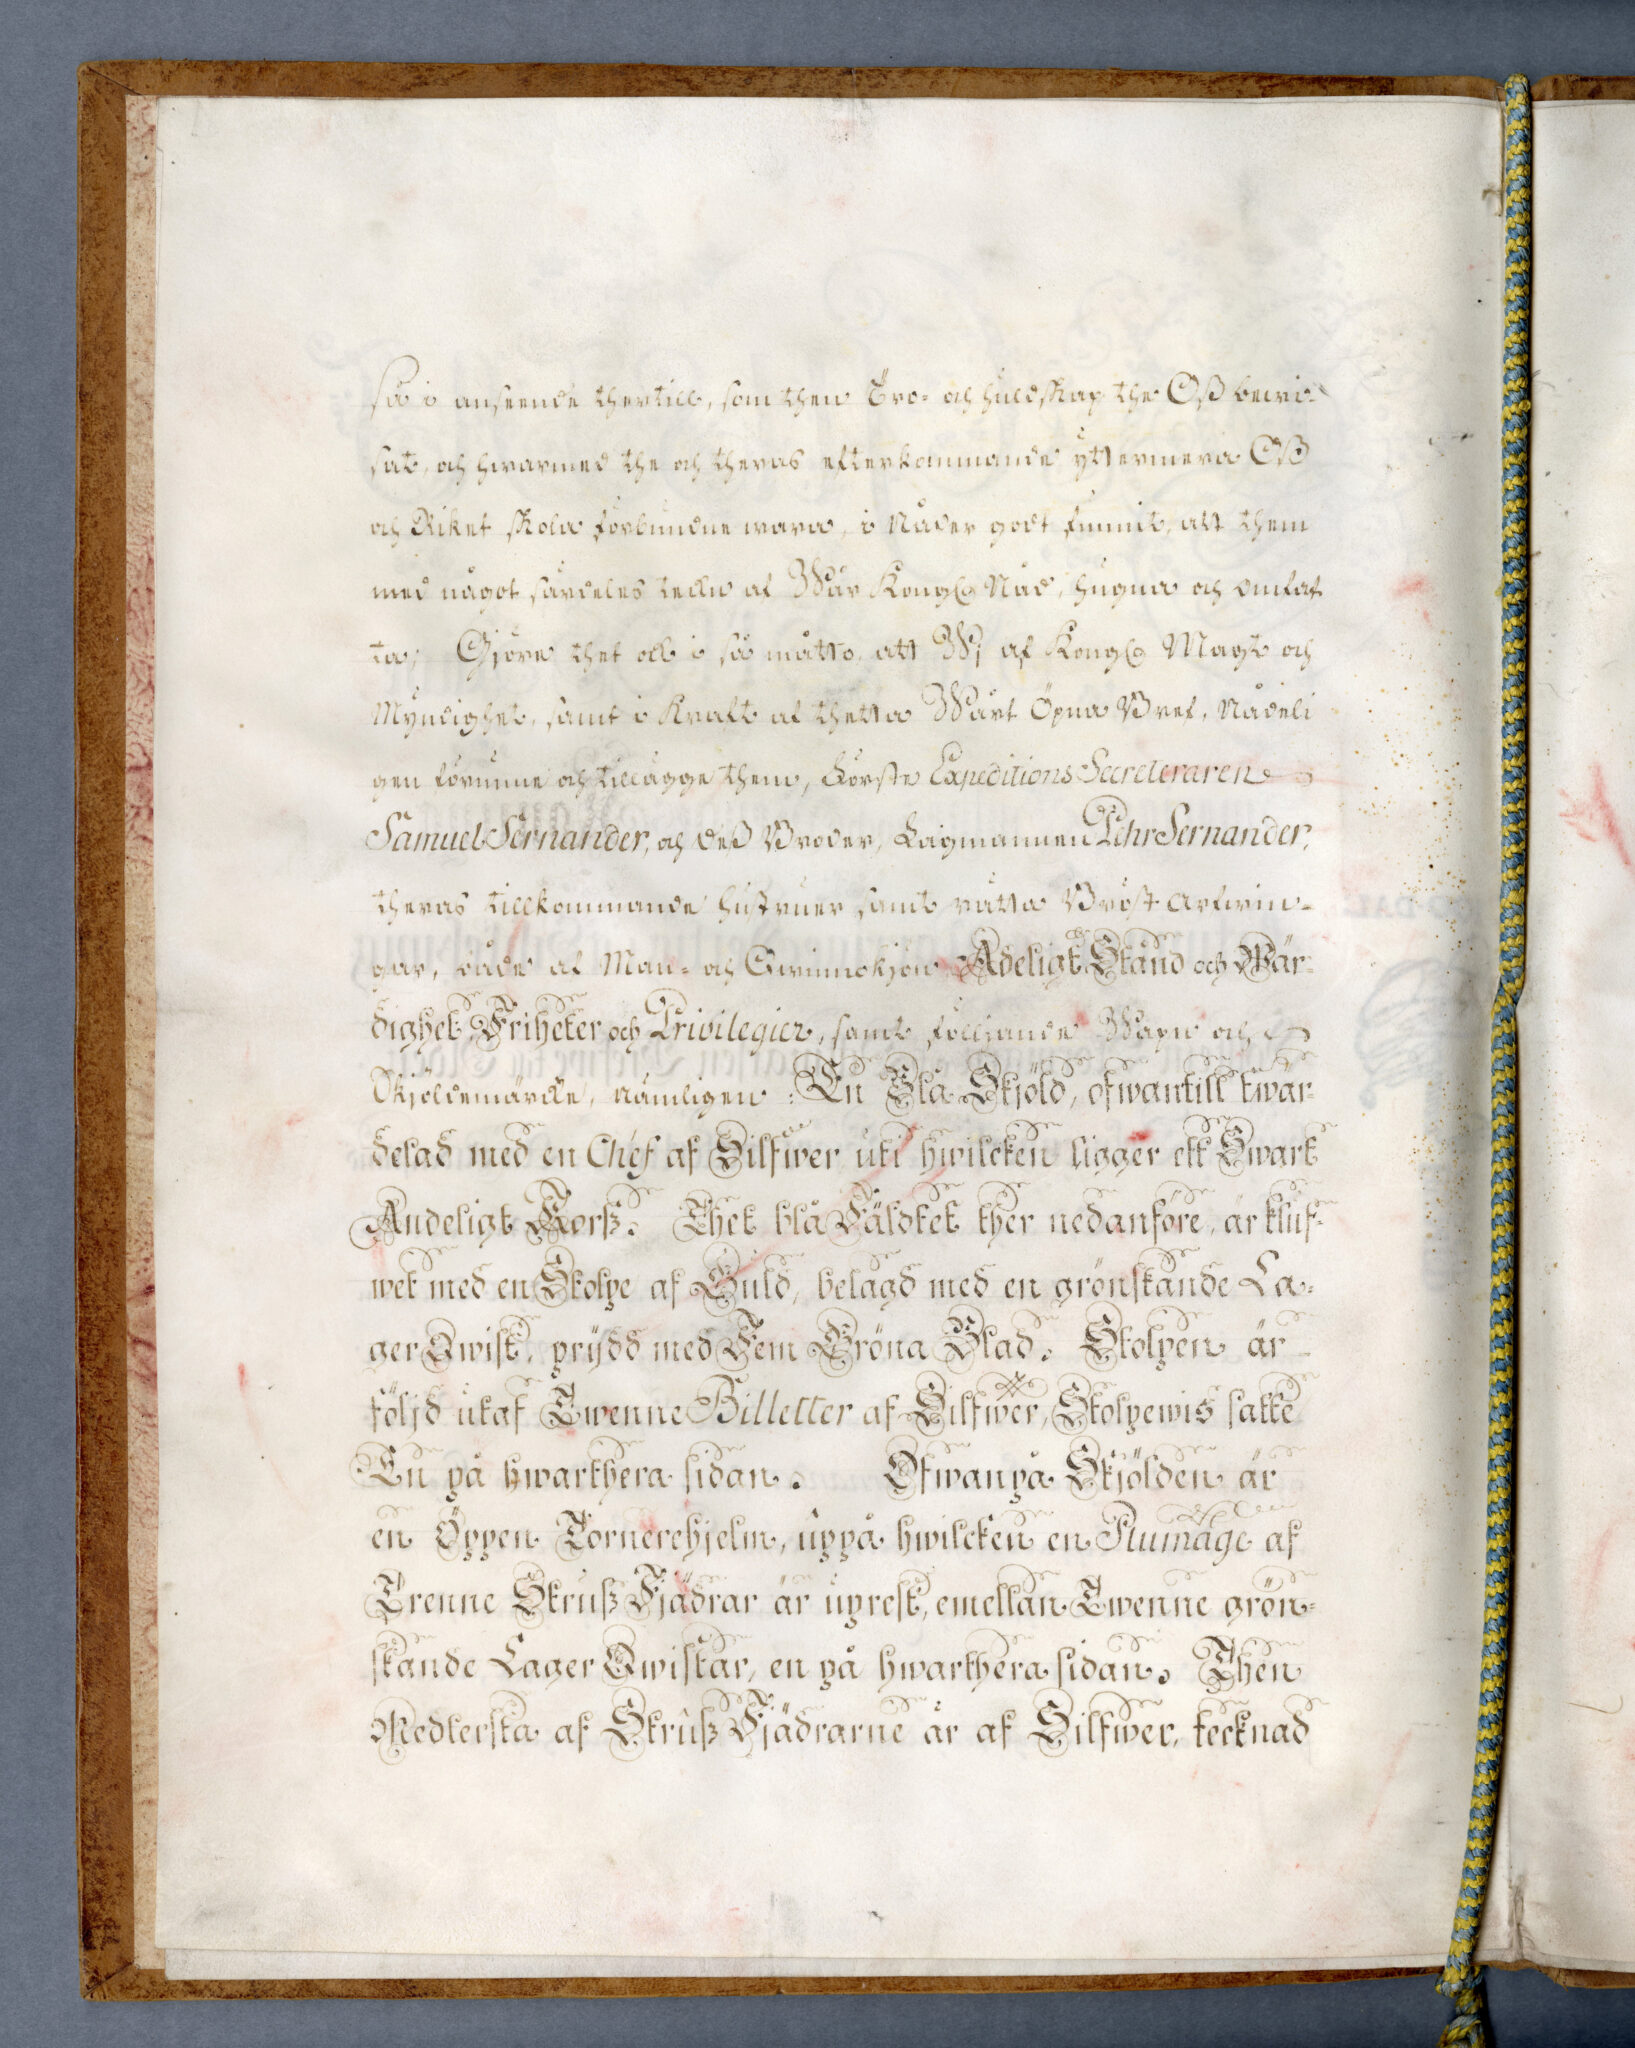 så i anseende thertill, som then Tro- och huldskap the Oß bewi-
sat, och hwarmed the och theras efterkommande yttermera Oß
och Riket skola förbundne wara, i Nåder godt funnit, att them
med något särdeles teckn af Wår Kongl. Nåd, hugna och omfat
ta; Gjöre thet ock i så måtto, att Wj af Kongl. Magt och
Myndighet, samt i Kraft af thetta Wårt Öpna Bref, Nådeli
gen förunne och tillägge them, Förste Expeditions Secreteraren
Samuel Sernander, och deß Broder, Lagmannen Pehr Sernander,
theras tillkommande hustruer samt rätta Bröst Arfwin-
gar, både af Man- och Qwinnokjön Adeligt Stånd och Wär-
dighet, Friheter och Privilegier, samt följiande Wapn och
Skjöldemärcke, nämligen: En Blå Skjöld, ofwantill twär-
delad med en Chef af Silfwer uti hwilcken ligger ett Swart
Andeligt Korß. Thet blå Fäldtet ther nedanföre, är kluf-
wet med en Stolpe af Guld, belagd med en grönskande La-
ger Qwist, prydd med Fem Gröna Blad. Stolpen är
följd utaf Twenne Billetter af Silfwer, Stolpewis satte
En på hwarthera sidan. Ofwanpå Skjölden är
en Öppen Tornerehjelm, uppå hwilcken en Plumage af
Trenne Strußfjädrar är uprest, emellan Twenne grön-
skande Lager Qwistar, en på hwarthera sidan. Then
Medlersta af Strußfjädrarne är af Silfwer, tecknad